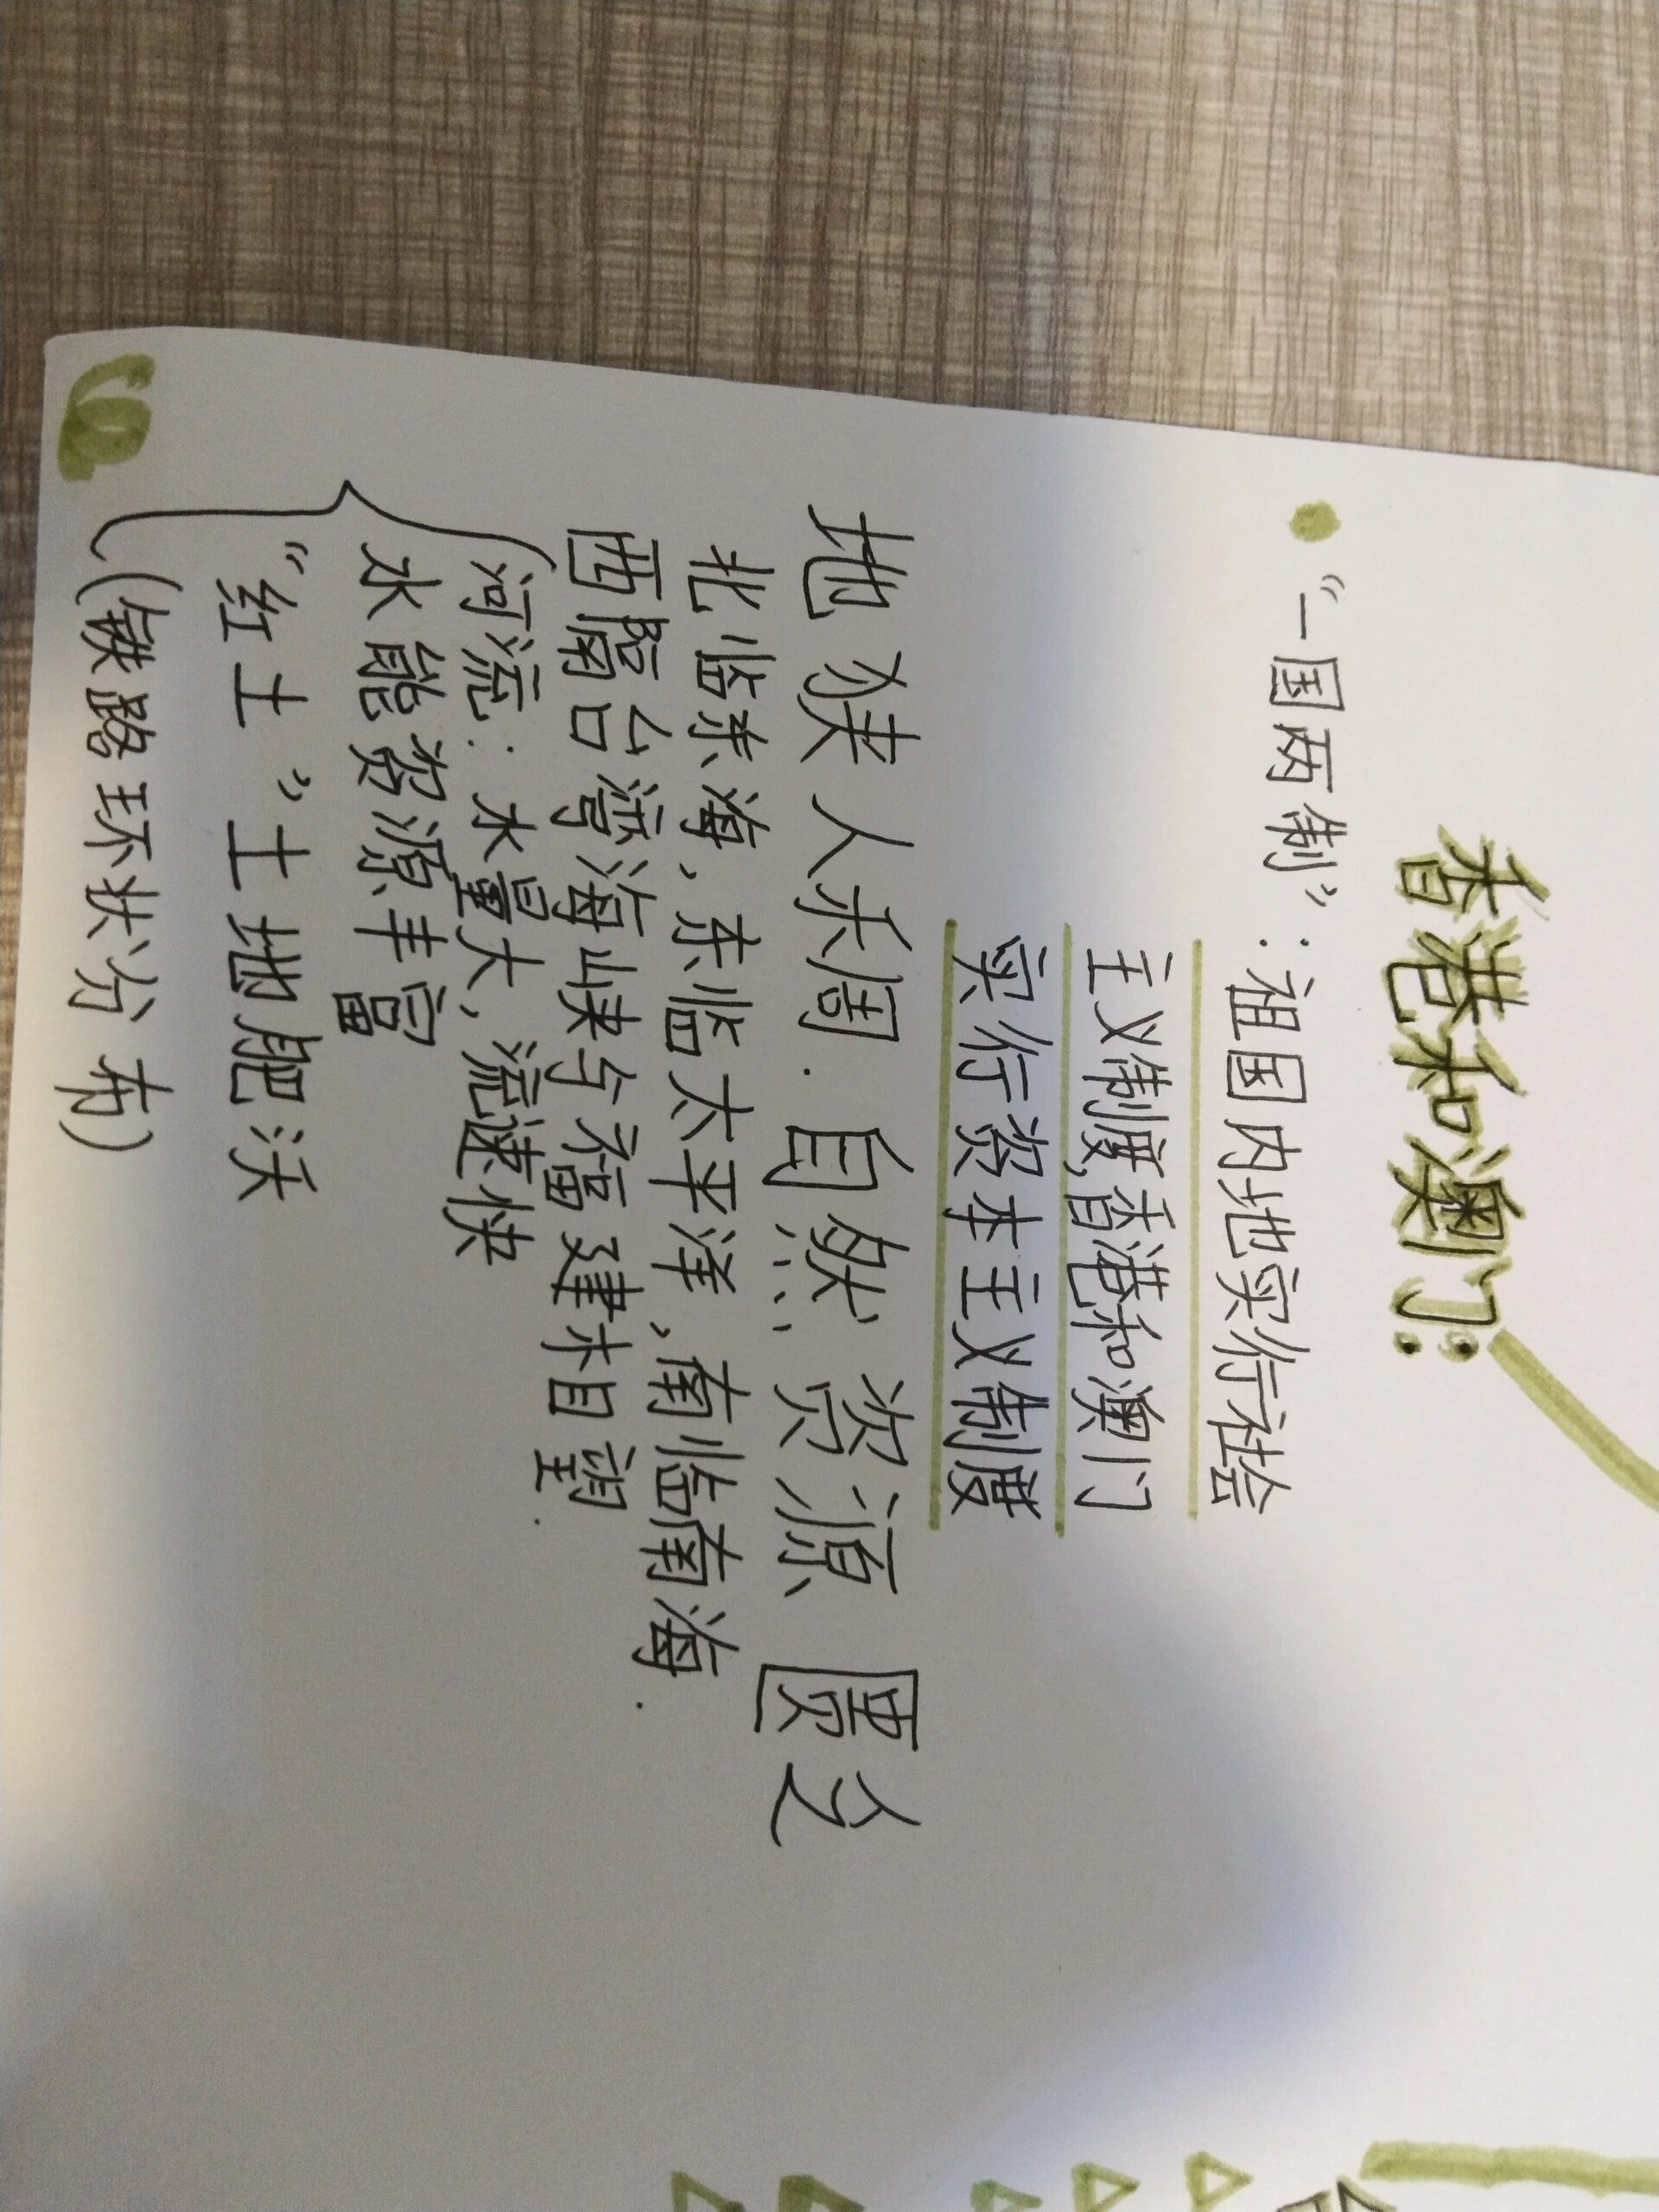 香港和澳门:
“一国两制”:祖国内地实行社会
主义制度,香港和澳门
实行资本主义制度
地狭人稠.自然资源匮乏
北临东海,东临太平洋,南临南海.
西隔台湾海峡与福建相望.
河流:水量大,流速快
水能资源丰富
“红土”土地肥沃
(铁路环状分布)